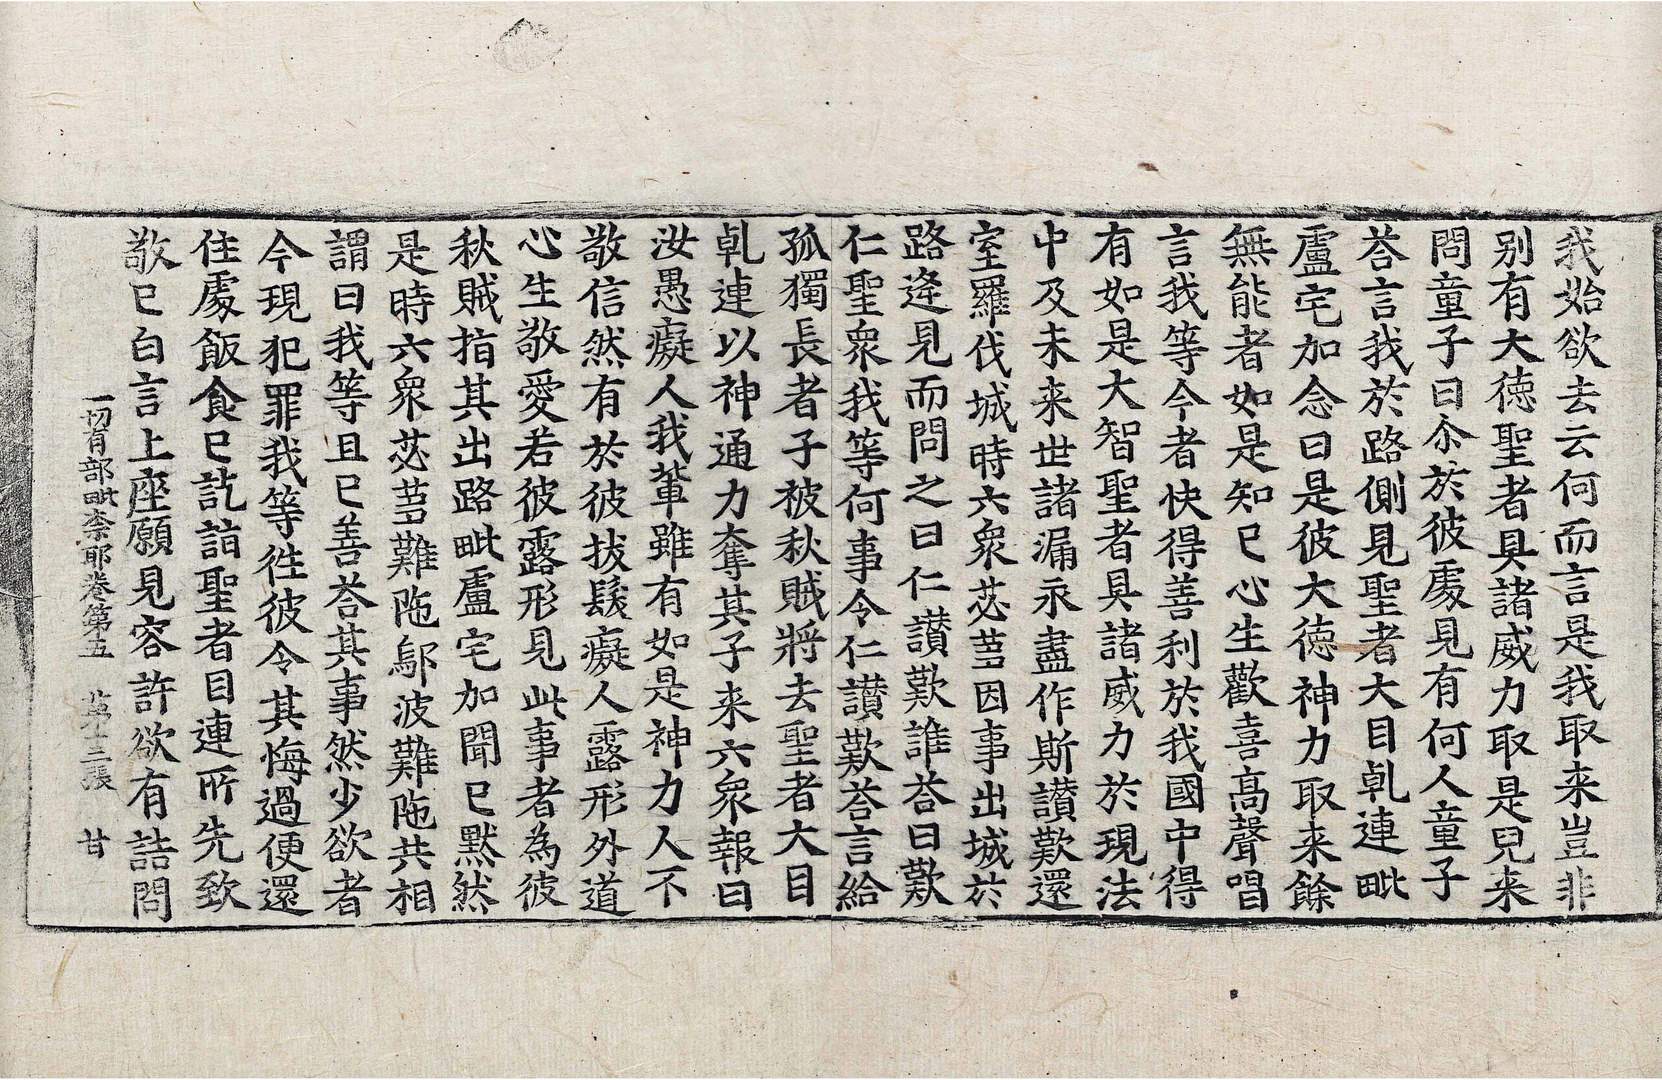 我始欲去云何而言是我取来豈非
别有大德聖者具諸威力取是兒来
問童子曰尒於彼處見有何人童子
荅言我於路側見聖者大目乹連毗
盧宅加念曰是彼大德神力取来餘
無能者如是知已心生歡喜高聲唱
言我等今者快得善利於我國中得
有如是大智聖者具諸威力於現法
中及未来世諸漏永盡作斯讃歎還
室羅伐城時六衆苾蒭因事出城於
路逄見而問之曰仁讃歎誰荅曰歎
仁聖衆我等何事令仁讃歎荅言給
孤獨長者子被秋賊將去聖者大目
乹連以神通力奪其子来六衆報曰
汝愚癡人我輩雖有如是神力人不
敬信然有於彼拔髮癡人露形外道
心生敬愛若彼露形見此事者為彼
秋賊指其出路毗盧宅加聞已黙然
是時六衆苾蒭難陁鄔波難陁共相
謂曰我等且已善荅其事然少欲者
今現犯罪我等徃彼令其悔過便還
住處飯食已訖詣聖者目連所先致
敬已白言上座願見容許欲有詰問
一切有部毗柰耶卷第五 第十三張 甘